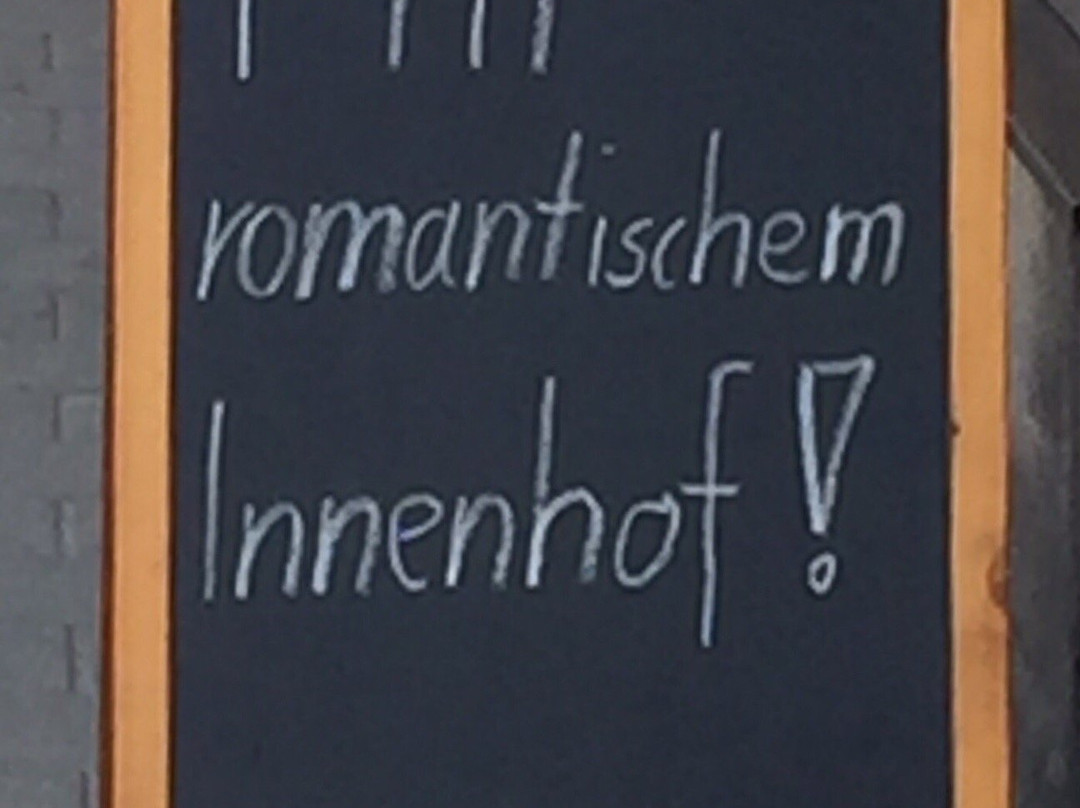 romantischem
Innenhof!